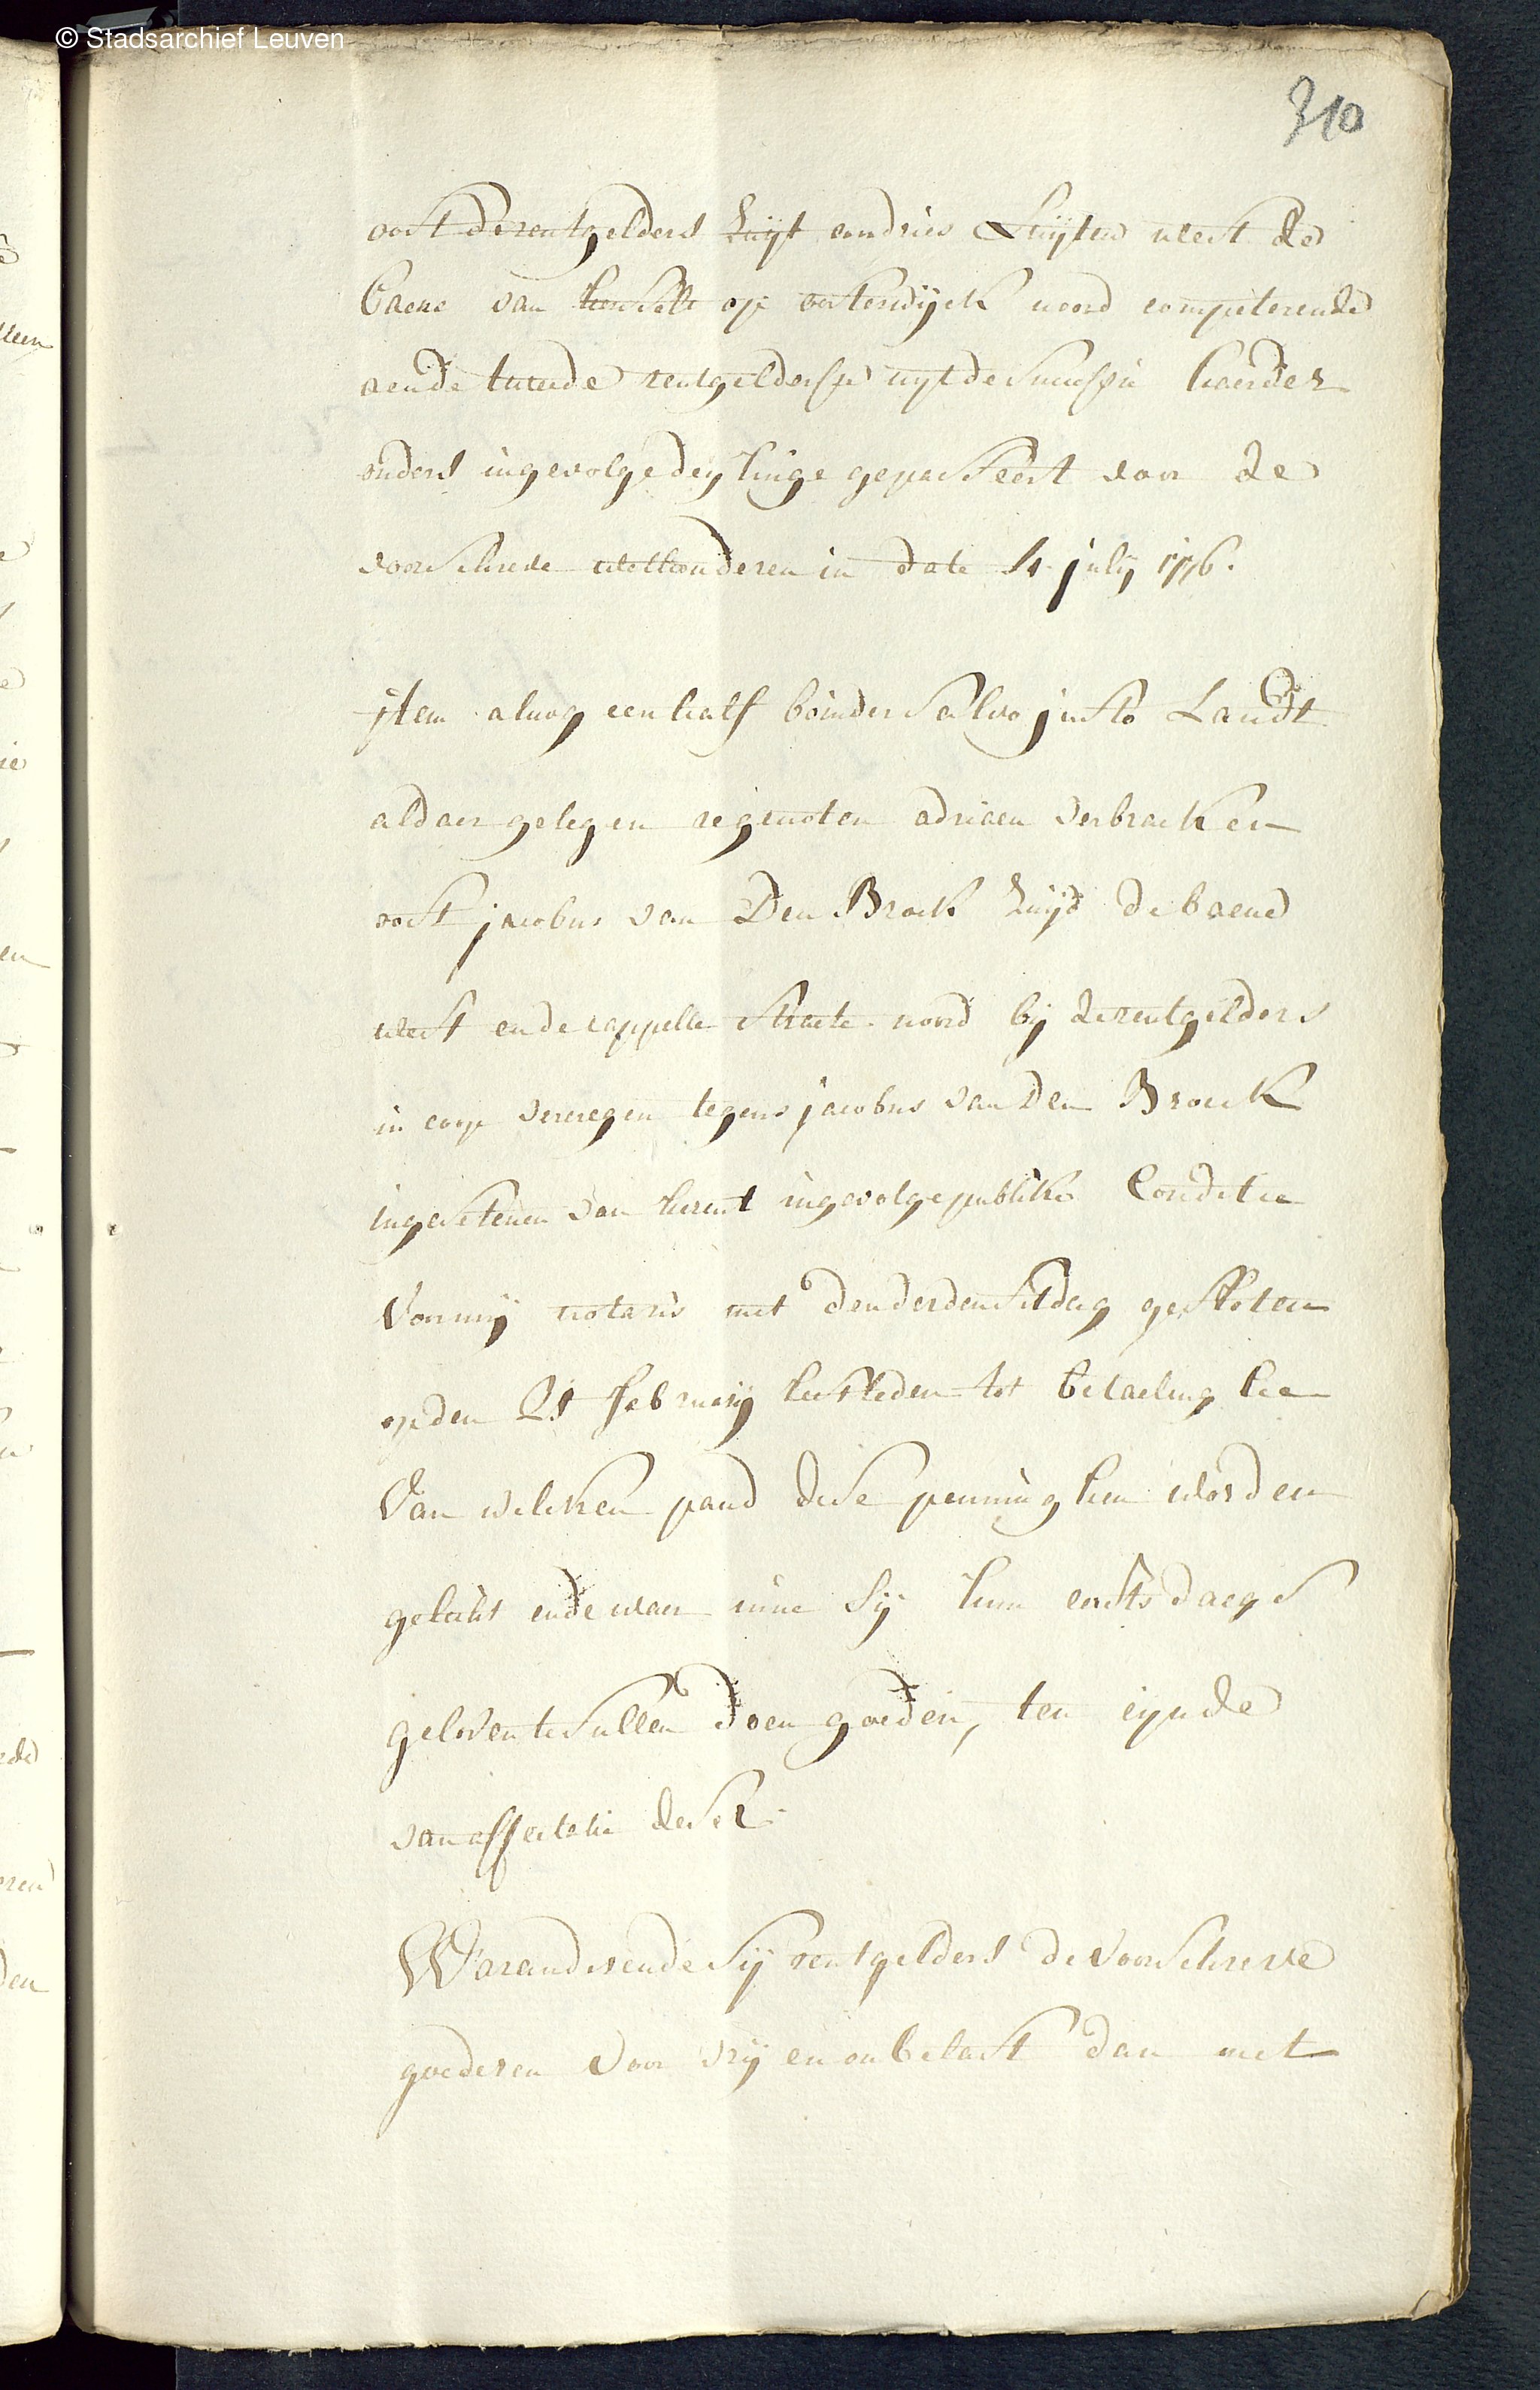 © Stadsarchief Leuven
310
oost de rentgelders zuyt andries Luyten west de
baene van herselt op oosterwijck noord competerende
aen de tweede rentgeldersse uyt de successie haerder
ouders ingevolge deylinge gepasseert voor de
voorschreve wethouderen in date 4 july 1776.
item alnog een half bonder salvo justo Landt
aldaer gelegen regenoten adriaen verbraeken
oost jacobus van Den Broek zuyd de baene
west ende cappelle straete noord bij de rentgelders
in coop vercregen tegens jacobus van Den Broeck
ingesetenen van herent ingevolge publike Conditie
voor mij notaris met den derden sitdag gesloten
op den 21 february lestleden tot betaeling
Van welcken pand dese penninghen worden
gelicht ende waer inne sij hun eerstdaegs
geloven te sullen doen goeden, ten eynde
van affectatie deser
Waranderende sij rentgelders de voorschreve
goederen voor vrij en onbelast dan met